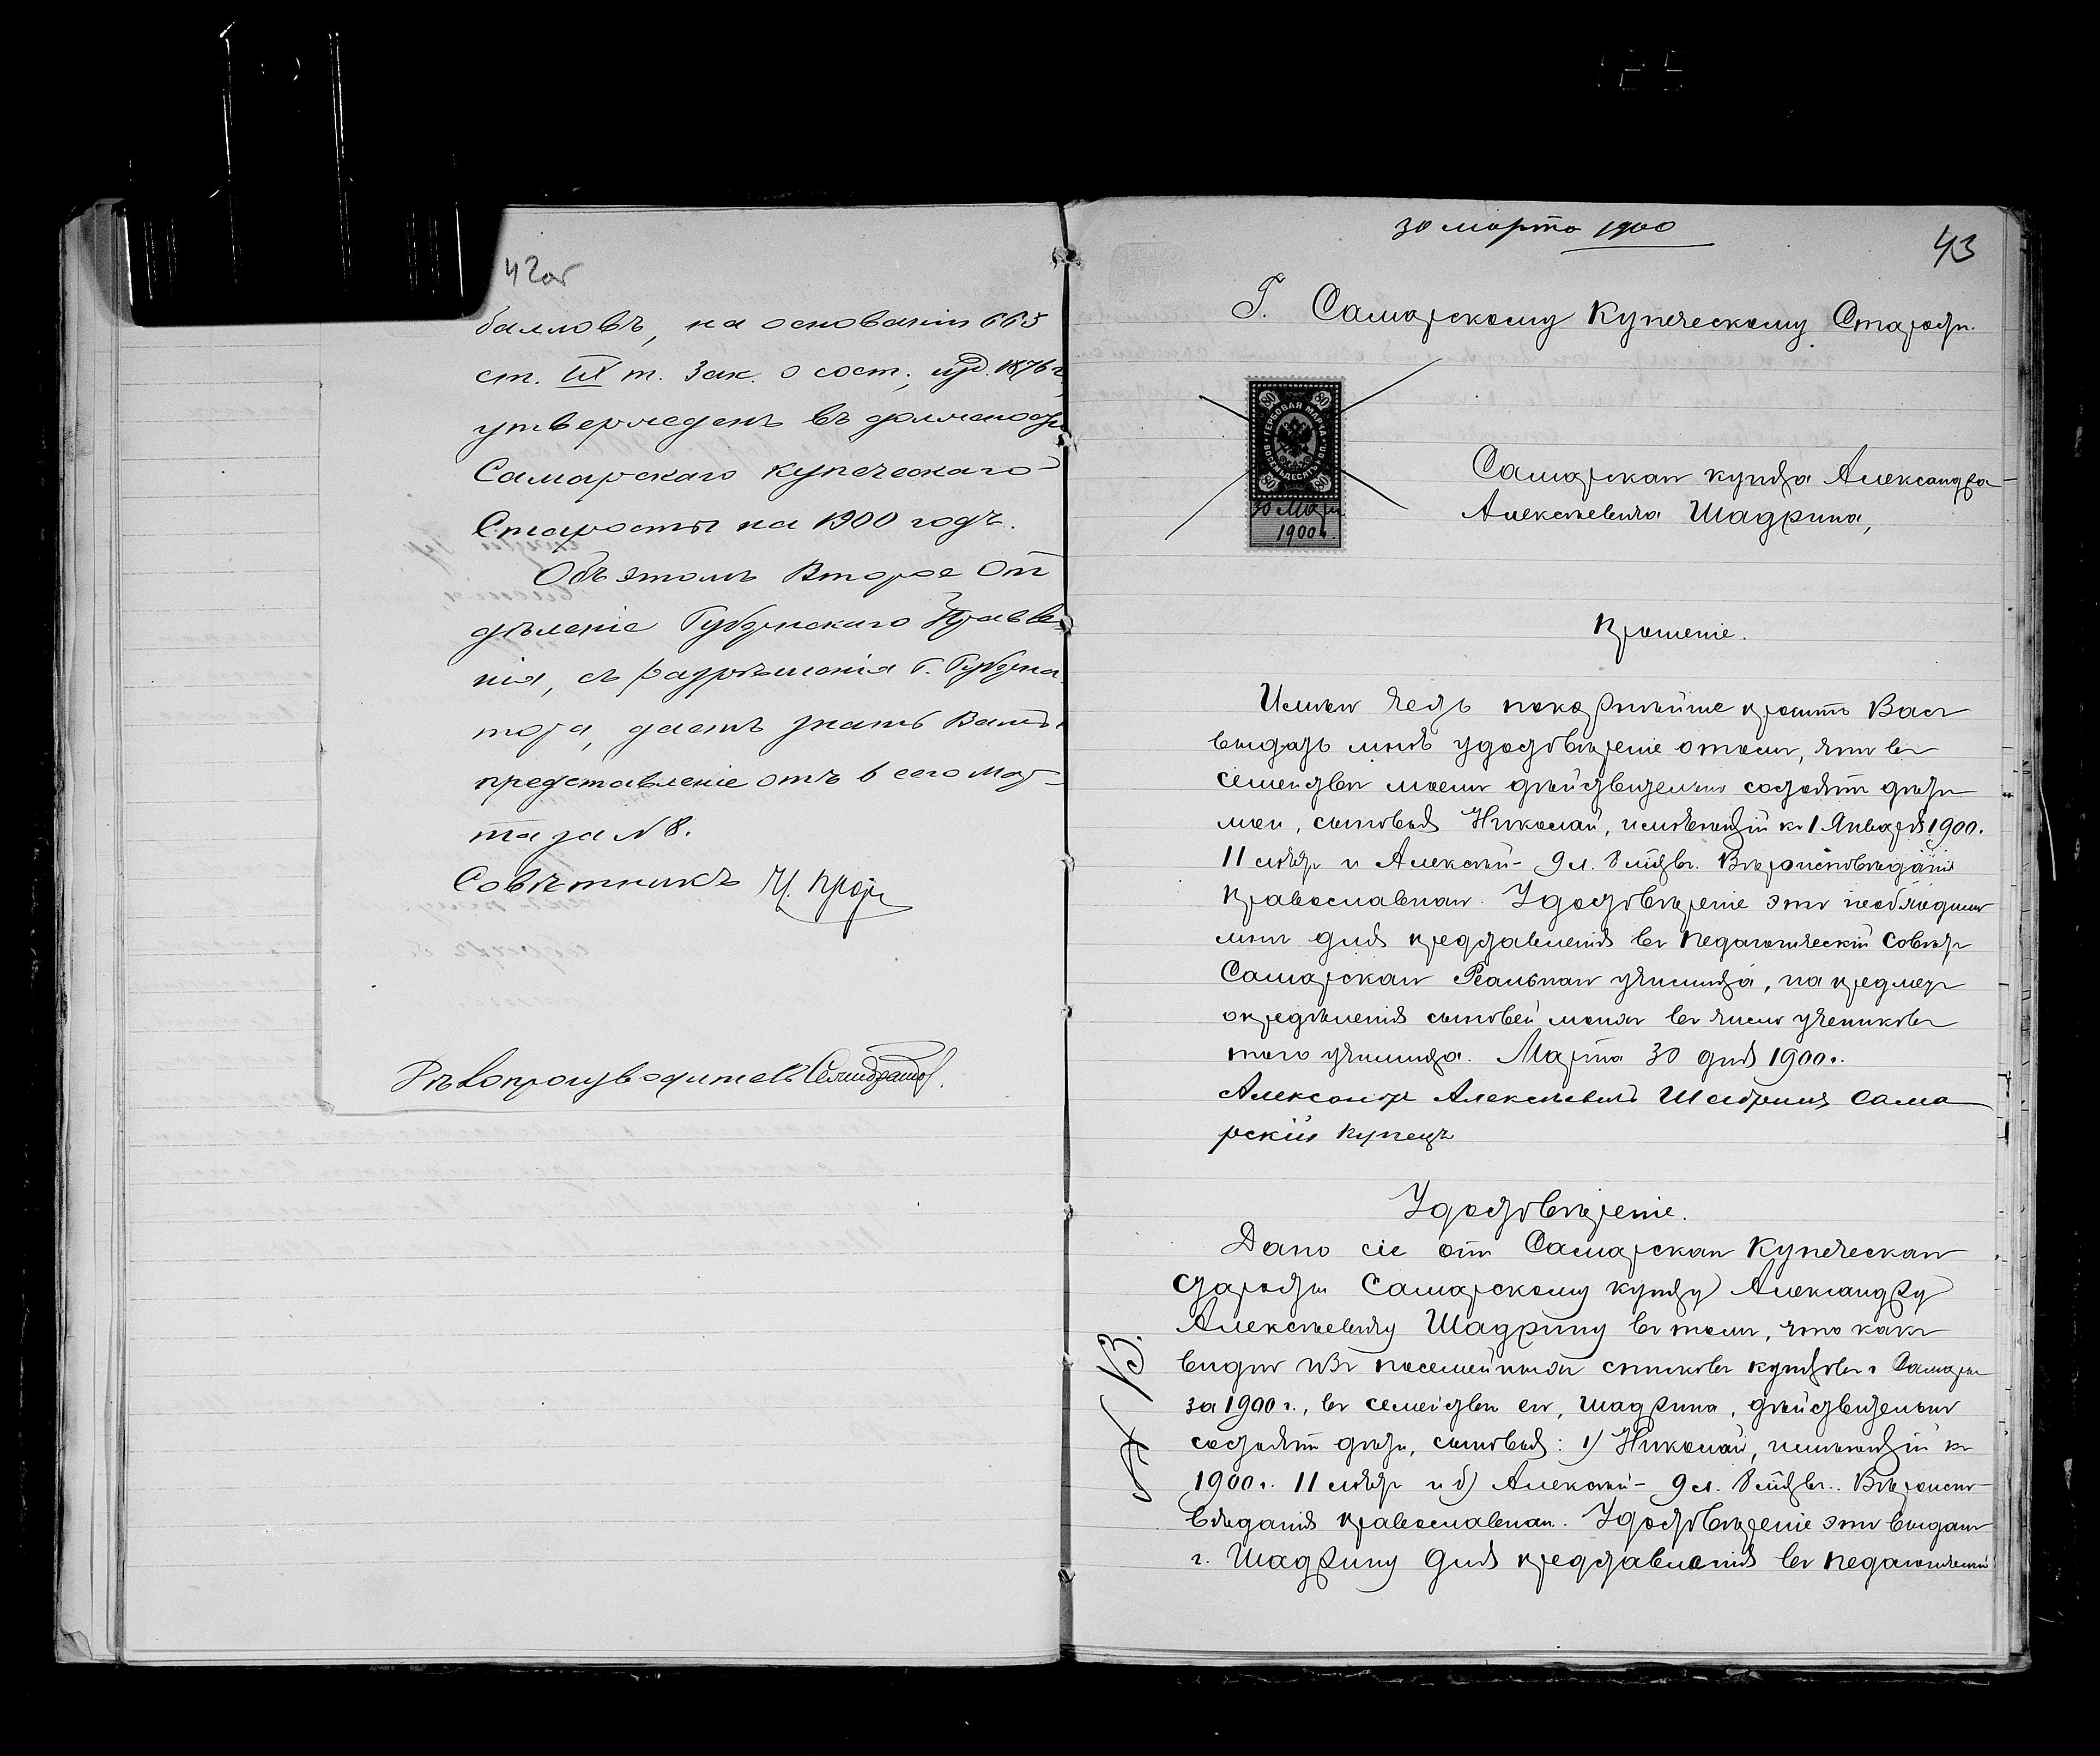 42об
балловъ, на основаніи 665
ст. IX т. Зак. о сост., изд. 1876 г.
утвержденъ въ должности
Самарскаго Купеческаго
Старосты на 1900 годъ.
Объ этомъ Второе От
дѣленіе Губернскаго Правле-
нія, съ разрѣшенія Г. Губерна
тора, даетъ знать Вамъ на
представленіе отъ 6 сего Мар-
та за № 8.
Совѣтникъ
Дѣлопроизводитель
30 марта 1900
43
Г. Самарскому Купеческому Старостѣ
ГЕРБОВАЯ МАРКА
ВОСЕМЬДЕСЯТЪ КОП.
80 80 80 80
30 Марта
1900 г.
Самарскаго купца Александра
Алексѣевича Шадрина,
Прошеніе.
Имѣю честь покорнѣйше просить Васъ
выдать мнѣ удостовѣреніе о томъ, что въ
семействѣ моемъ дѣйствительно состоятъ дѣти
мои, сыновья Николай, имѣющій къ 1 Января 1900 г.
11 лѣтъ и Алексѣй - 9 л. 8 мѣсцвъ. Вѣроисповѣданія
Православнаго. Удостовѣреніе это необходимо
мнѣ для представленія въ Педагогическій Совѣтъ
Самарскаго Реальнаго училища, на предметъ
опредѣленія сыновей моихъ въ число учениковъ
того училища. Марта 30 дня 1900 г.
Александръ Алексѣевичъ Шадринъ Сама
рскій Купецъ
Удостовѣреніе.
Дано сіе отъ Самарскаго Купеческаго
Старосты Самарскому купцу Александру
Алексѣевичу Шадрину въ томъ, что какъ
видно изъ посемейныхъ списковъ купцовъ г. Самары
за 1900 г., въ семействѣ его, Шадрина, дѣйствительно
состоятъ дѣти, сыновья: 1) Николай, имѣющій къ
1900 г. 11 лѣтъ и б) Алексѣй - 9 л. 8 мѣсцвъ. Вѣроиспо-
вѣданія православнаго. Удостовѣреніе это выдано
г. Шадрину для представленія въ Педагогическій
№ 13.